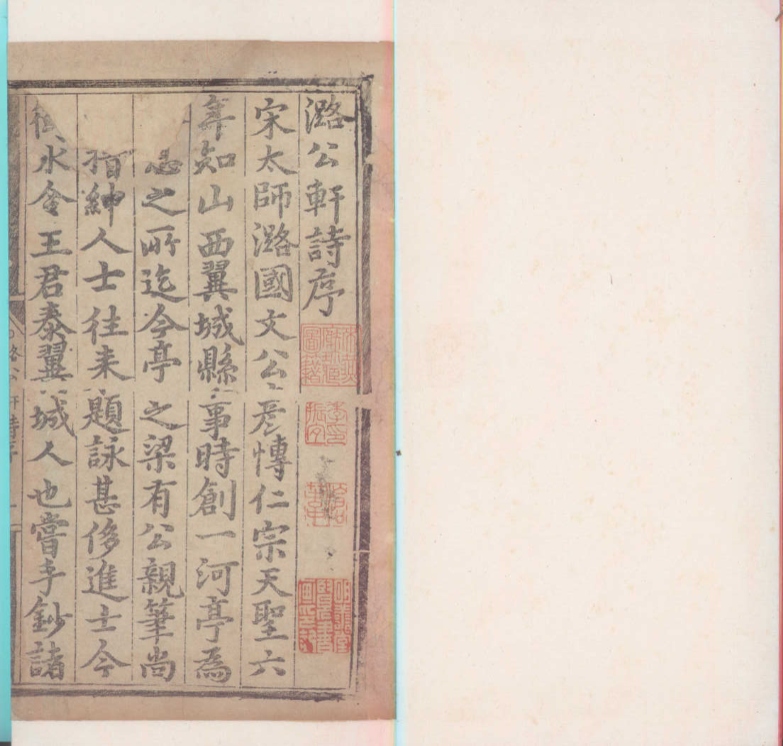 潞公軒詩序
宋太師潞國文公彥博仁宗天聖六
年知山西翼城縣事時創一河亭為
憩之所迄今亭之梁有公親筆尚
搢紳人士往来題詠甚侈進士今
水令王君泰翼城人也嘗手鈔諸